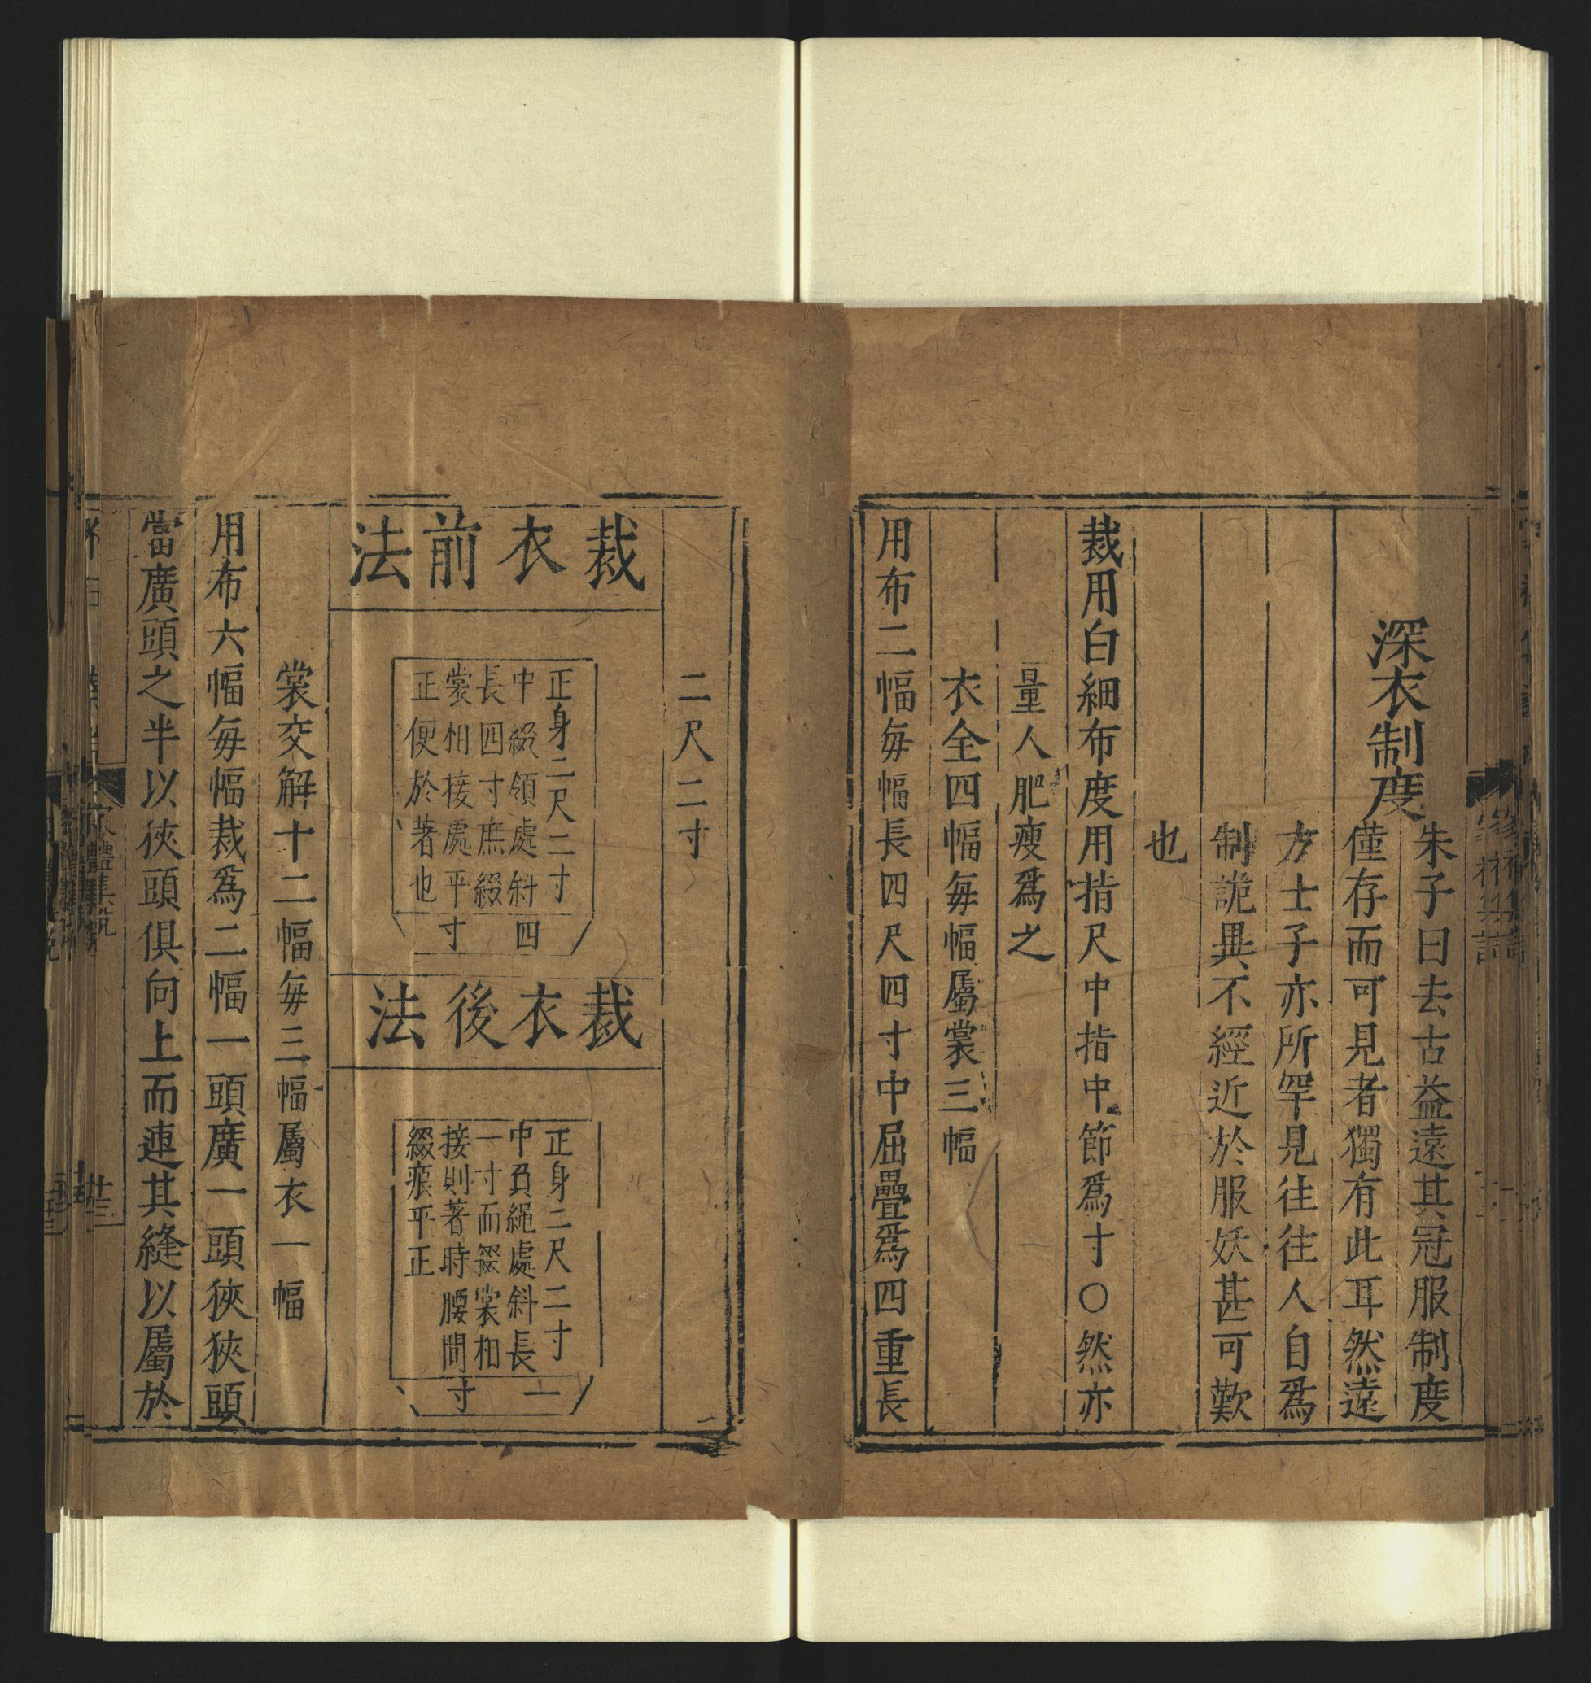 深衣制度
朱子曰去古益遠其冠服制度
僅存而可見者獨有此耳然遠
方士子亦所罕見往往人自爲
制詭異不經近於服妖甚可歎
也
裁用白細布度用指尺中指中節爲寸○然亦
量人肥瘦爲之
衣全四幅每幅屬裳三幅
用布二幅每幅長四尺四寸中屈疊爲四重長
二尺二寸
裁衣前法
正身二尺二寸
中綴領處斜四
長四寸庶綴
裳相接處平寸
正便於著也
裁衣後法
正身二尺二寸
中負繩處斜長一
一寸而綴裳相
接則著時腰間寸
綴痕平正
裳交解十二幅每三幅屬衣一幅
用布六幅每幅裁爲二幅一頭廣一頭狹狹頭
當廣頭之半以狹頭俱向上而連其縫以屬於
家禮集說
廿三